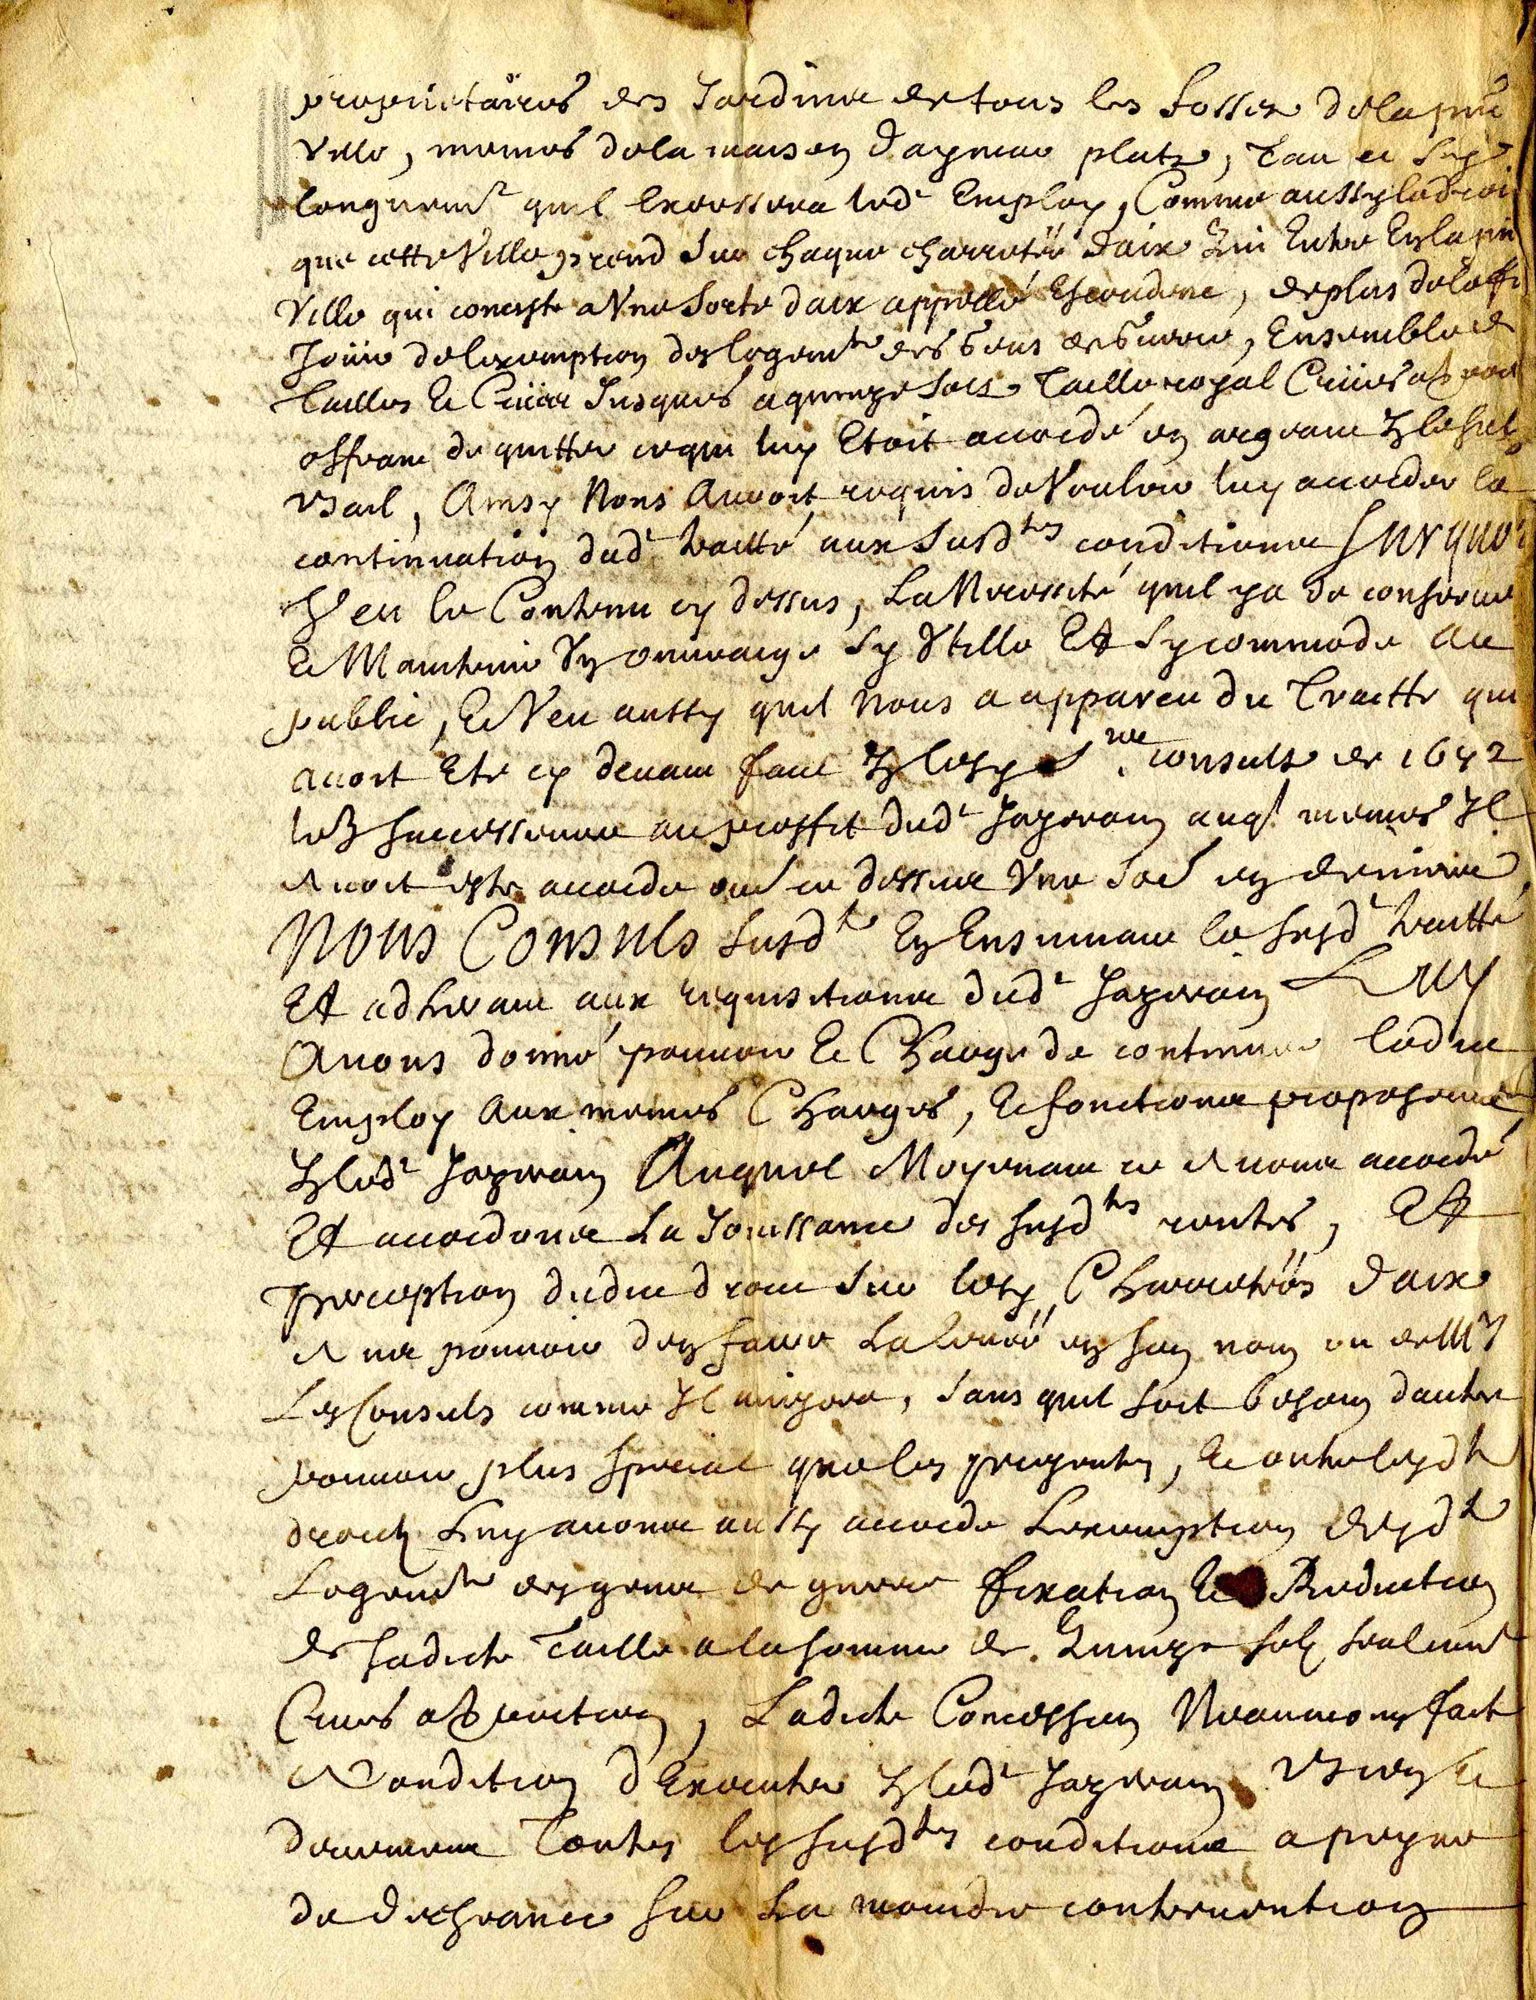 proprietaires des Jardins de tous les fosses dela pnt
Ville, memes dela maison daigneau plats, tan et sy
longuemt quil exercera led Employ, Comme aussy le droit
que cette Ville prend sur chaque charretée daix qui Entre En la pnt
Ville qui conciste a Une sorte daix appellé, de plus de
Jouir de lexemption des logemts des Gens de Guerre, Ensemble de
tailles et Criies Jusques a quinze sols Taille royal Criies
offrant de quitter ce qui luy Etoit accordé en argeant
Bail, Ainsy Nous auoit requis de Vouloir luy accorder la
continuation dud traitté aux susdtes conditions Surquoy
Veu le Contenu cy dessus, La Necessité quil ya de conserver
et Maintenir Un ouuraige sy Utille Et sy commode au
public, et Veu aussy quil nous a apparu du Traitté qui
auoit Ete cy deuant fait consuls de 1642
successeurs au proffit dud Jaqs memes Il
auoit este accordé
Nous Consuls susdts En Ensuiuant le susd traitté
Et adherant aux requisitions dud Luy
Auons donné pouuoir et Charge de continuer ledit
Employ Aux memes Charges, et fonctions proposées
led Auquel Moyenant ce Auons accordé
Et accordons La Jouissance des susdtes rentes, Et
perception dudit droit sur les Charretées daix
Auec pouuoir den faire La leuée en son nom ou de Mrs
Les Consuls comme Il auisera, sans quil soit besoin dautre
pouuoir plus special que les presentes, et outre lesdts
droits Luy auons aussy accordé Lexemption desdts
Logemts des gens de guerre fixation et Reduction
de sadicte Taille a la somme de Quinze sols seulemt
Criies, Ladicte Concession Neanmoins faite
A Condition dExecuter led Bien et
deuement Toutes les susdtes conditions a peyne
de decheance sur La moindre contrevention